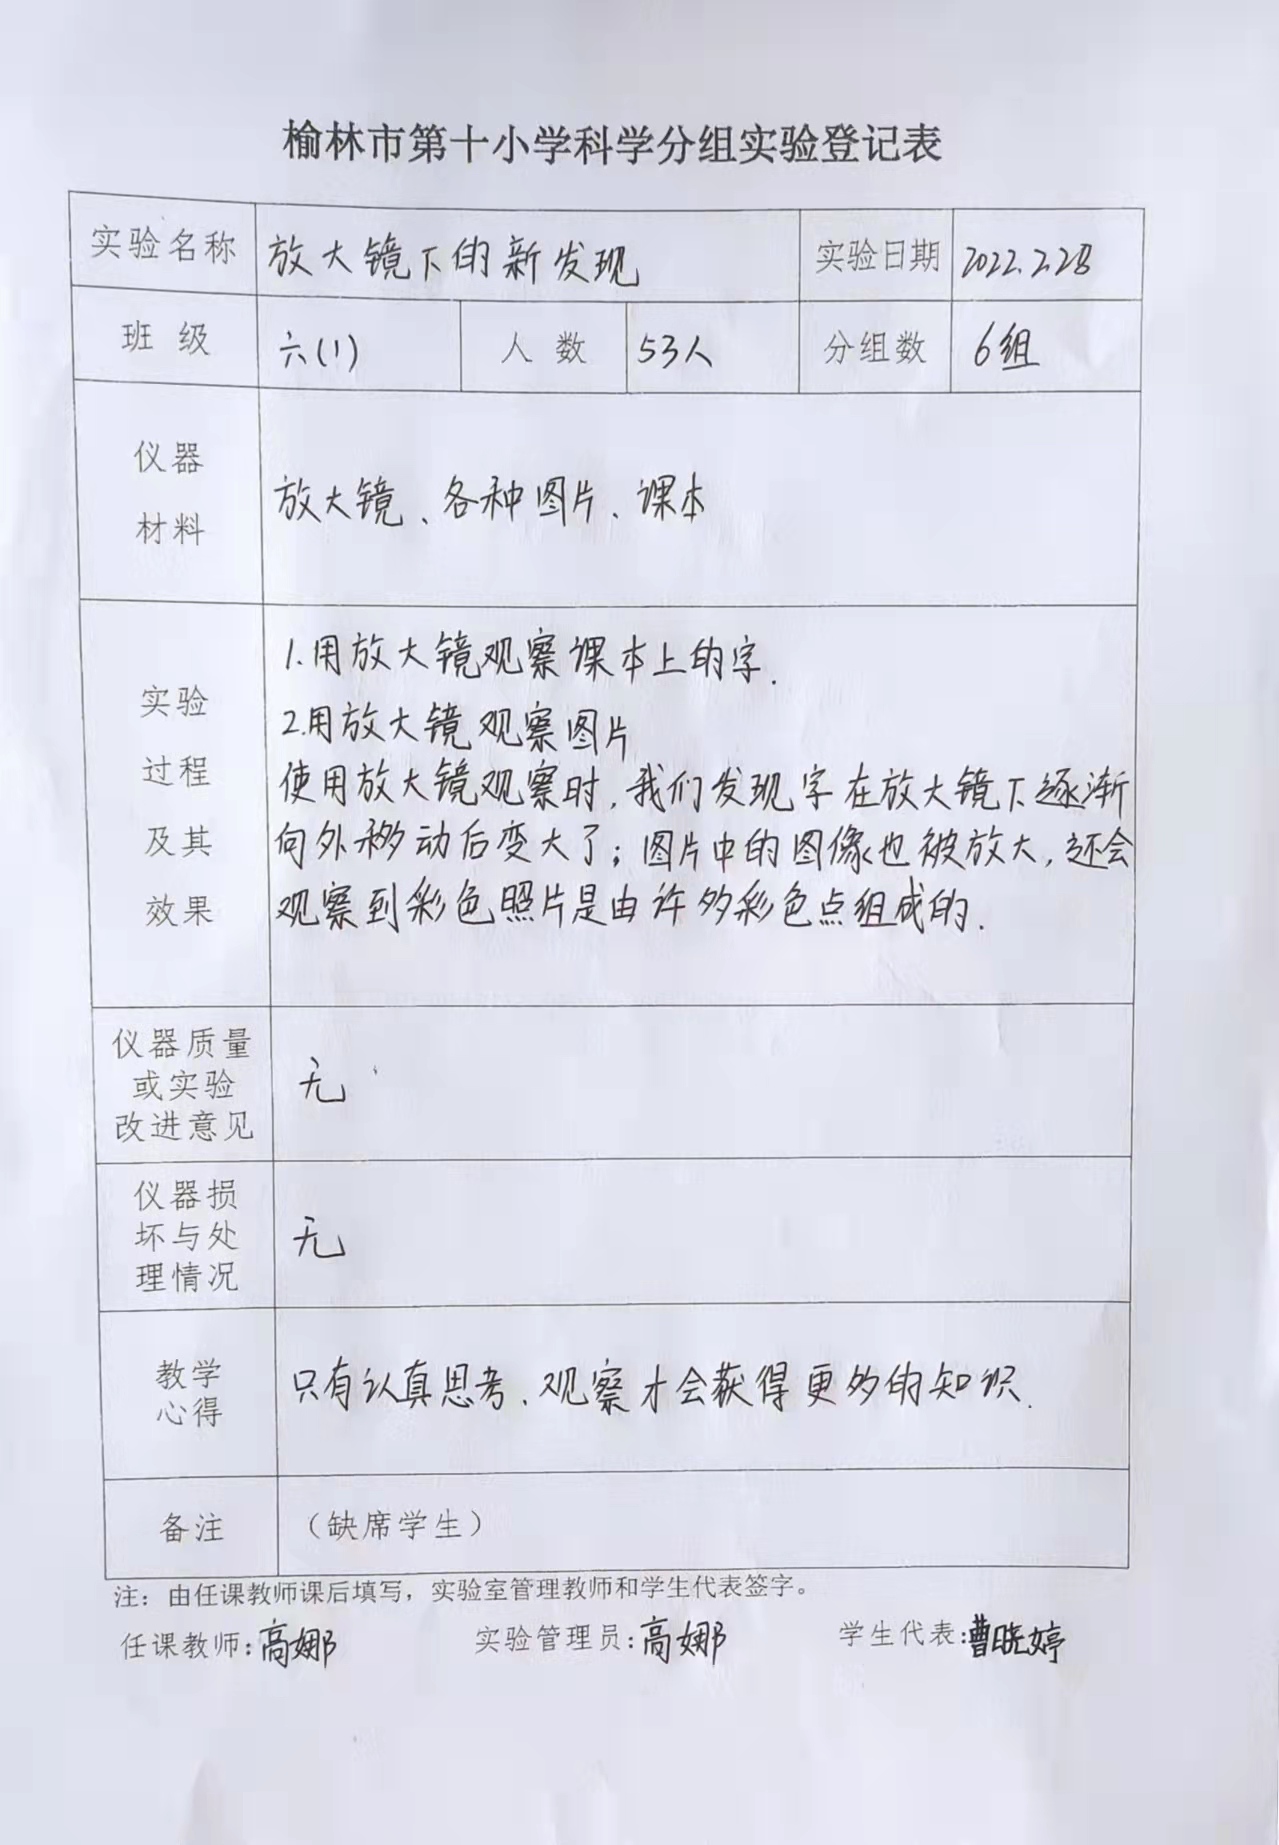 榆林市第十小学科学分组实验登记表
实验名称 放大镜下的新发现 实验日期 2022.2.28
班 级 六(1) 人 数 53人 分组数 6组
仪器
材料
放大镜、各种图片、课本
实验
过程
及其
效果
1.用放大镜观察课本上的字.
2.用放大镜观察图片
使用放大镜观察时,我们发现字在放大镜下逐渐
向外移动后变大了;图片中的图像也被放大,还会
观察到彩色照片是由许多彩色点组成的.
仪器质量
或实验
改进意见
无
仪器损
坏与处
理情况
无
教学
心得
只有认真思考、观察才会获得更多的知识.
备注 (缺席学生)
注:由任课教师课后填写,实验室管理教师和学生代表签字。
任课教师:高娜 实验管理员:高娜 学生代表:曹晓婷